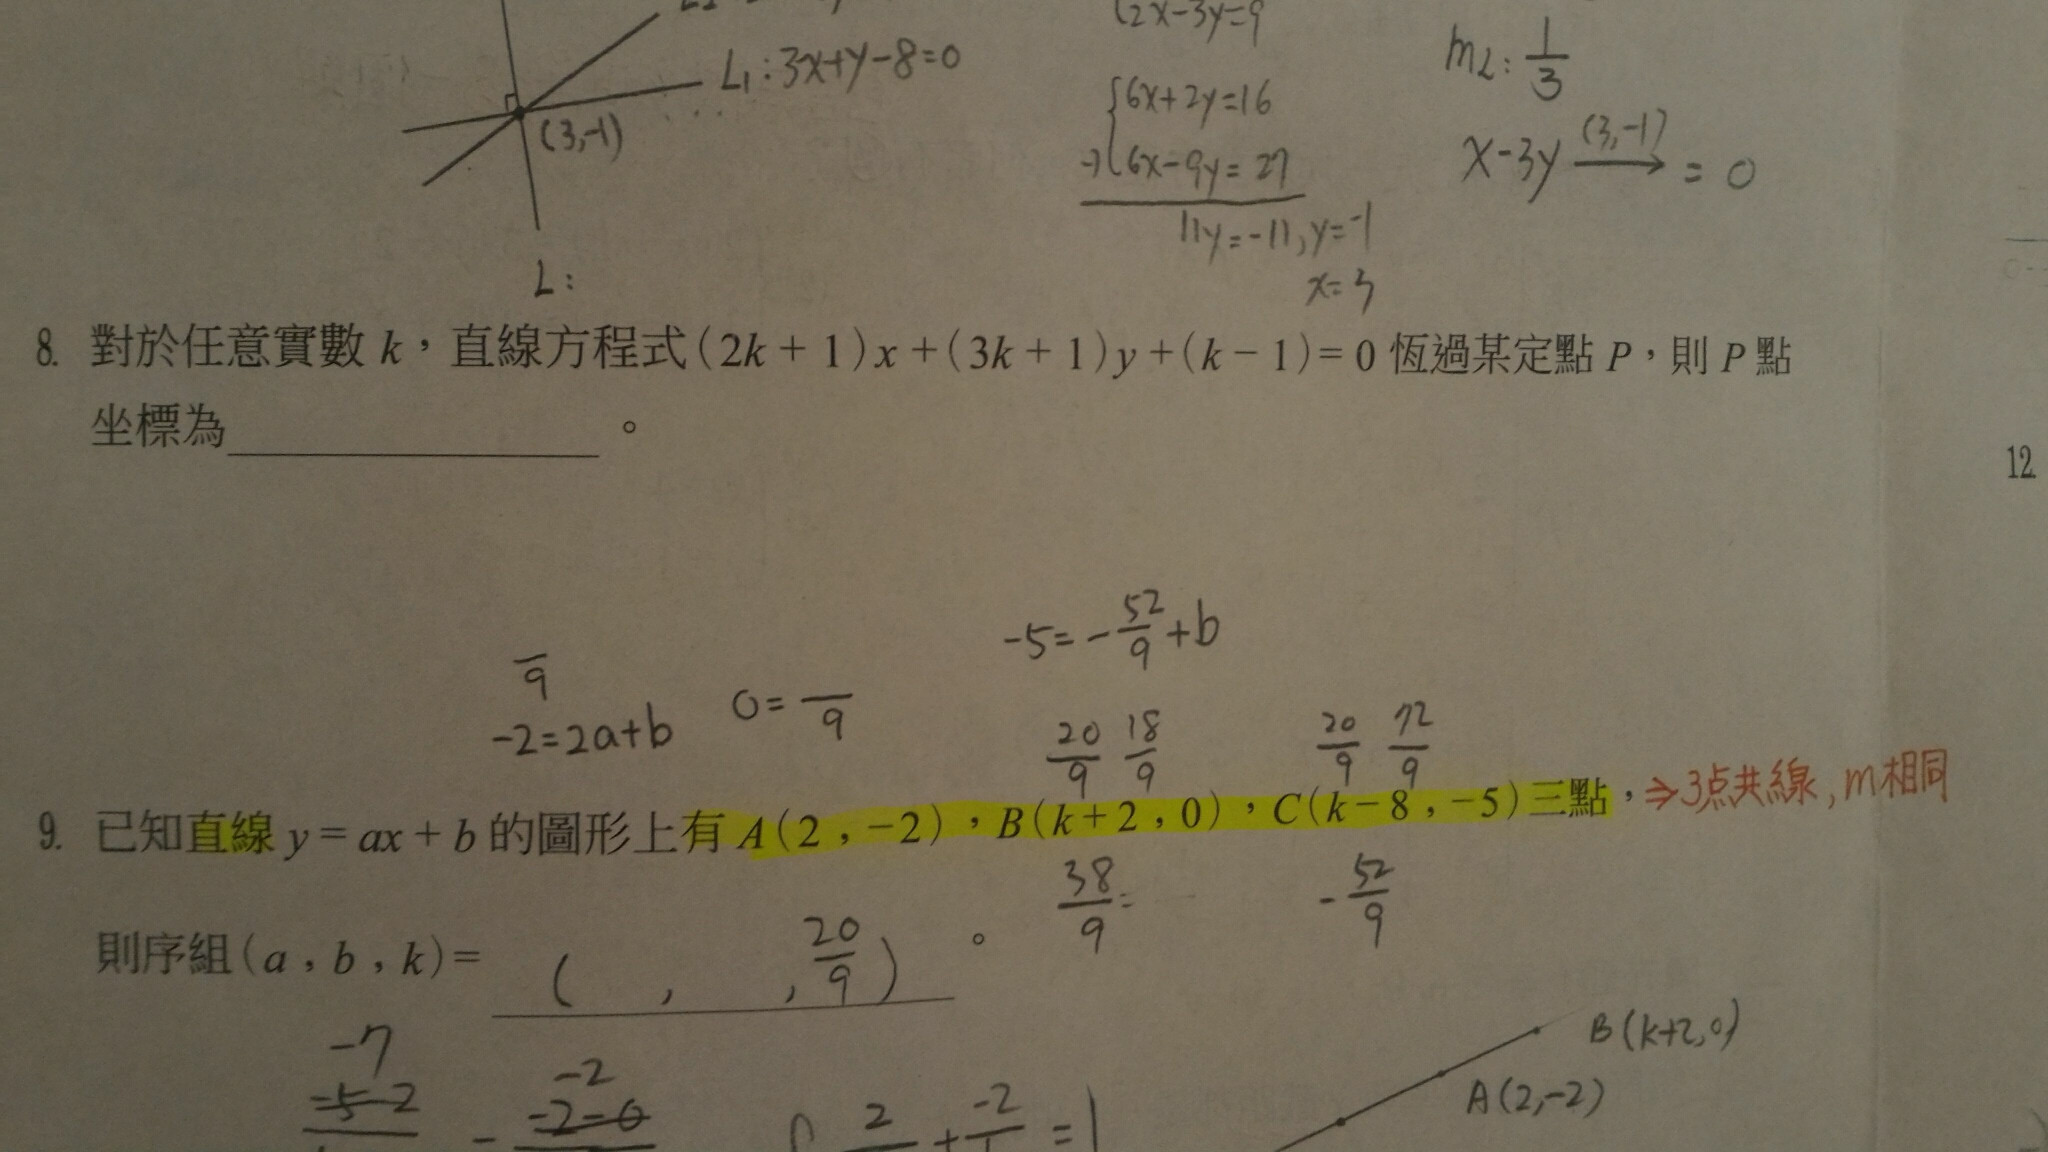 L1:3x+y-8=0
(3,-1)
L:
2x-3y=9
6x+2y=16
-) 6x-9y=27
11y=-11,y=-1
x=3
mL:1/3
x-3y (3,-1)→ =0
8. 對於任意實數 k,直線方程式(2k+1)x+(3k+1)y+(k-1)=0 恆過某定點 P,則 P 點
坐標為 。
12.
-5=-52/9+b
9
-2=2a+b
0= /9
20/9 18/9
20/9 72/9
9. 已知直線 y=ax+b 的圖形上有 A(2,-2),B(k+2,0),C(k-8,-5)三點,⇒3点共線,m相同
38/9=
-52/9
則序組(a,b,k)= ( , ,20/9) 。
-7
-5-2
-2
-2-0
2 + -2 =1
B(k+2,0)
A(2,-2)